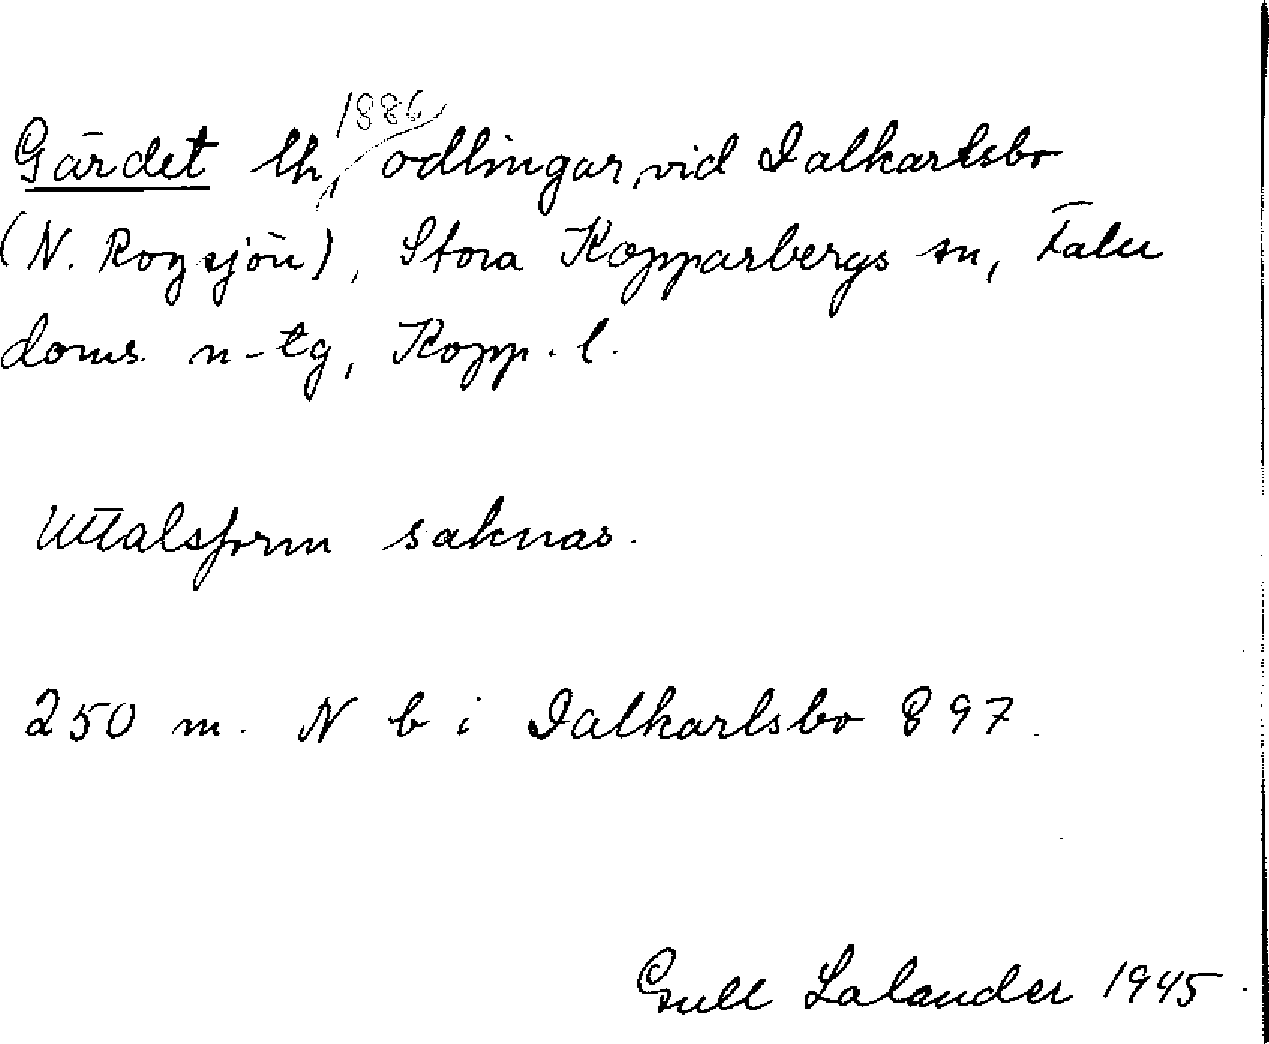 1886
Gärdet lh, odlingar, vid Dalkarlsbo
(N. Rogsjön), Stora Kopparbergs sn, Falu
doms. n-tg, Kopp. l.
Uttalsform saknas.
250 m. N b i Dalkarlsbo 897.
Gull Lalander 1945.